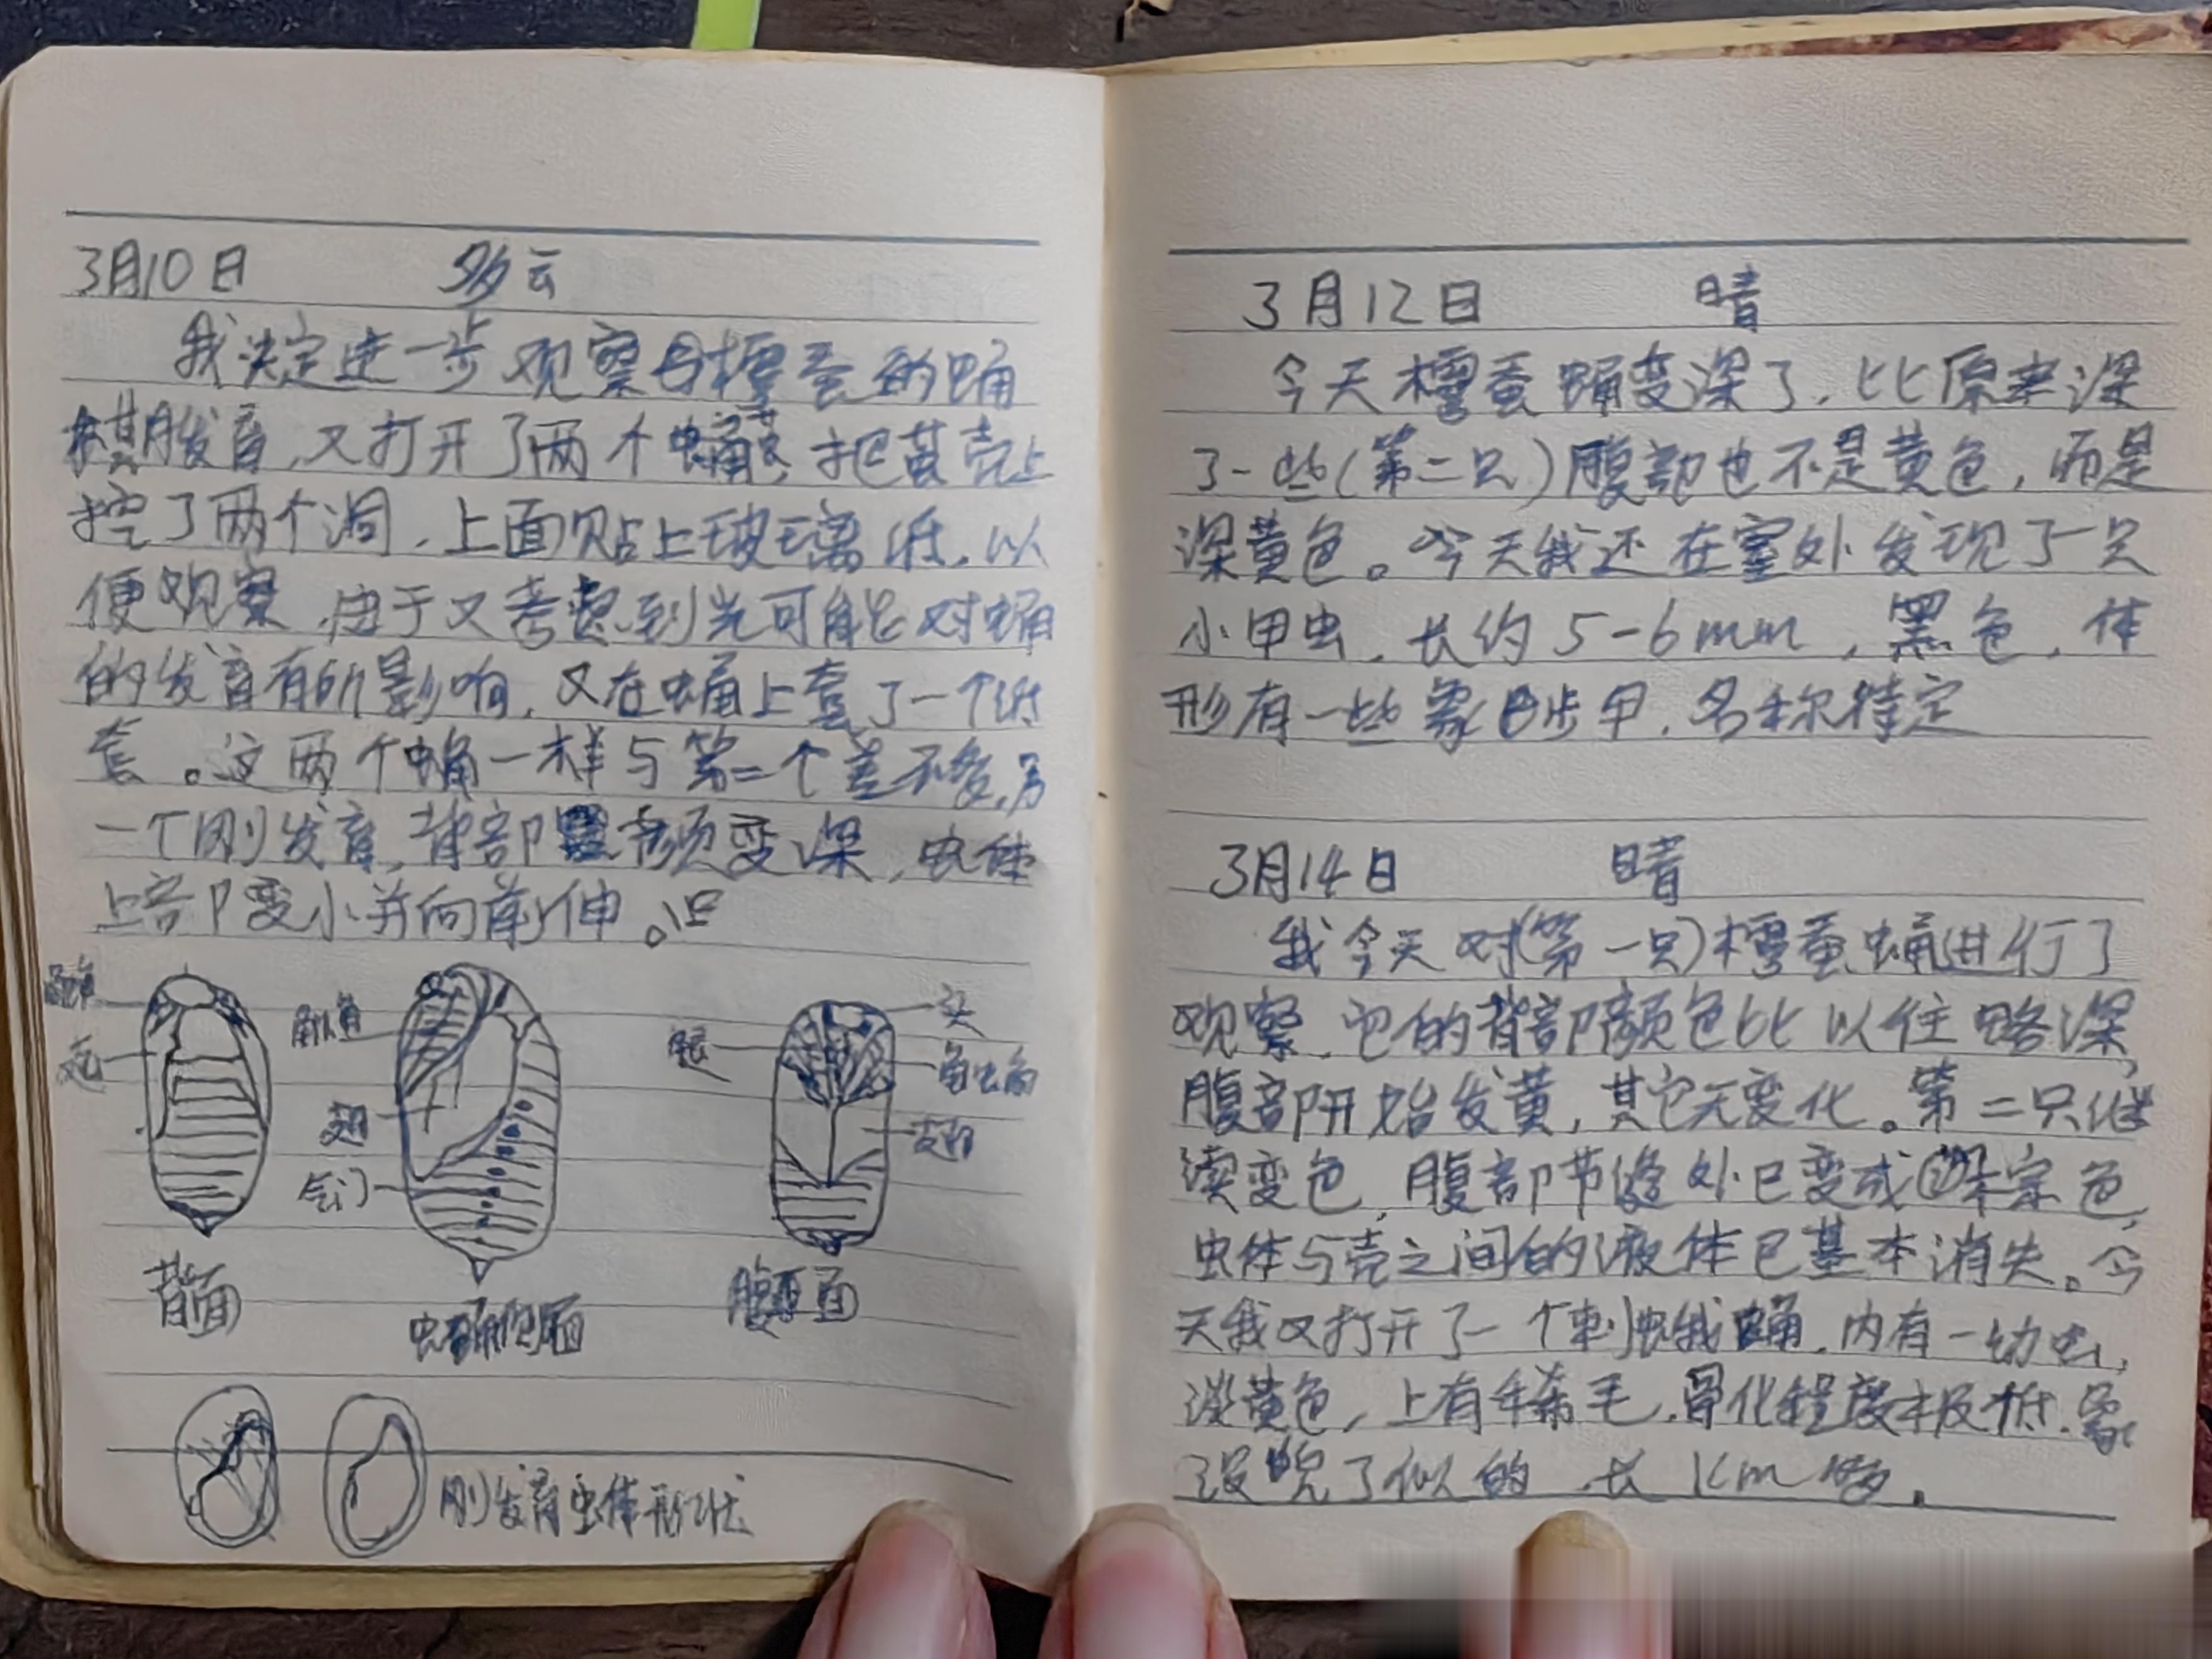 3月10日 多云
我决定进一步观察樗蚕的蛹
期发育,又打开了两个蛹,把茧壳上
挖了两个洞,上面贴上玻璃纸,以
便观察,由于又考虑到光可能对蛹
的发育有所影响,又在蛹上套了一个纸
套。这两个蛹一样与第二个差不多,另
一个刚发育,背部颜变深,虫体
上部变小并向前伸。只
触角
翅
背面
触角
翅
气门
蛹侧面
腿
头
触角
翅
腹面
刚发育虫体形状
3月12日 晴
今天樗蚕蛹变深了,比原来深
了一些(第二只)腹部也不是黄色,而是
深黄色。今天我还在室外发现了一只
小甲虫,长约5-6mm,黑色,体
形有一些象步甲,名称待定
3月14日 晴
我今天对(第一只)樗蚕蛹进行了
观察,它的背部颜色比以往略深,
腹部开始发黄,其它无变化。第二只继
续变色,腹部节缝处已变成深棕色,
虫体与壳之间的液体已基本消失。今
天我又打开了一个刺蛾蛹,内有一幼虫,
淡黄色,上有毛,骨化程度极低,象
没蜕了似的,长1cm多。